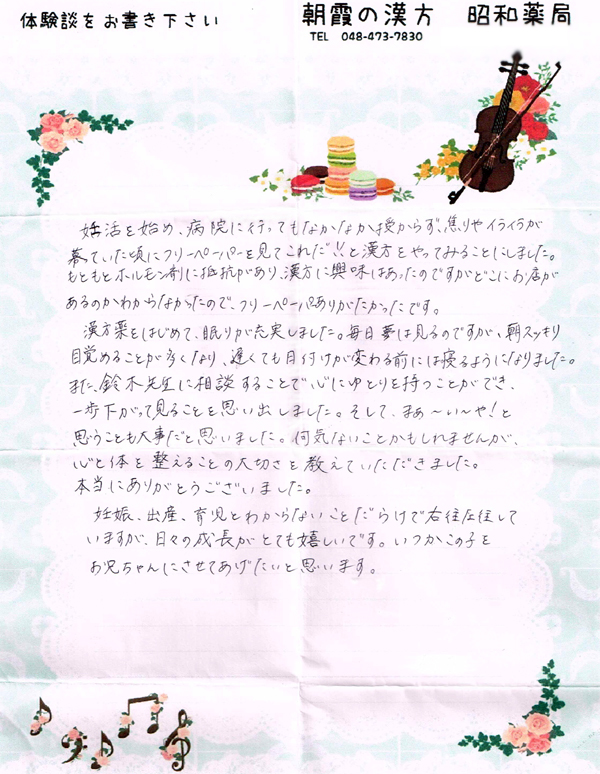 体験談をお書き下さい
朝霞の漢方 昭和薬局
TEL 048-473-7830
妊活を始め、病院に行ってもなかなか授からず、焦りやイライラが
募っていた頃にフリーペーパーを見てこれだ!!と漢方をやってみることにしました。
もともとホルモン剤に抵抗があり、漢方に興味はあったのですがどこにお店が
あるのかわからなかったので、フリーペーパーありがたかったです。
漢方薬をはじめて、眠りが充実しました。毎日夢は見るのですが、朝スッキリ
目覚めることが多くなり、遅くても日付けが変わる前には寝るようになりました。
また、鈴木先生に相談することで、心にゆとりを持つことができ、
一歩下がって見ることを思い出しました。そして、まぁ〜い〜や!と
思うことも大事だと思いました。何気ないことかもしれませんが、
心と体を整えることの大切さを教えていただきました。
本当にありがとうございました。
妊娠、出産、育児とわからないことだらけで右往左往して
いますが、日々の成長がとても嬉しいです。いつかこの子を
お兄ちゃんにさせてあげたいと思います。